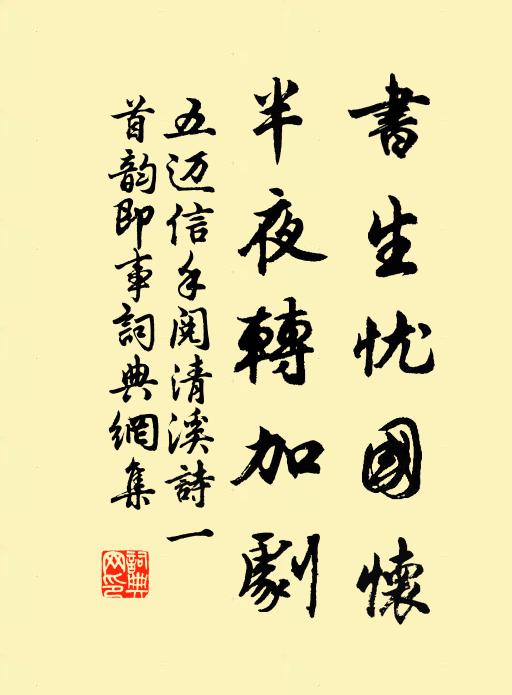 書生忧國懷
半夜轉加劇
五迈信手阅清溪詩一
首韵即事詞典網集
詞典网印